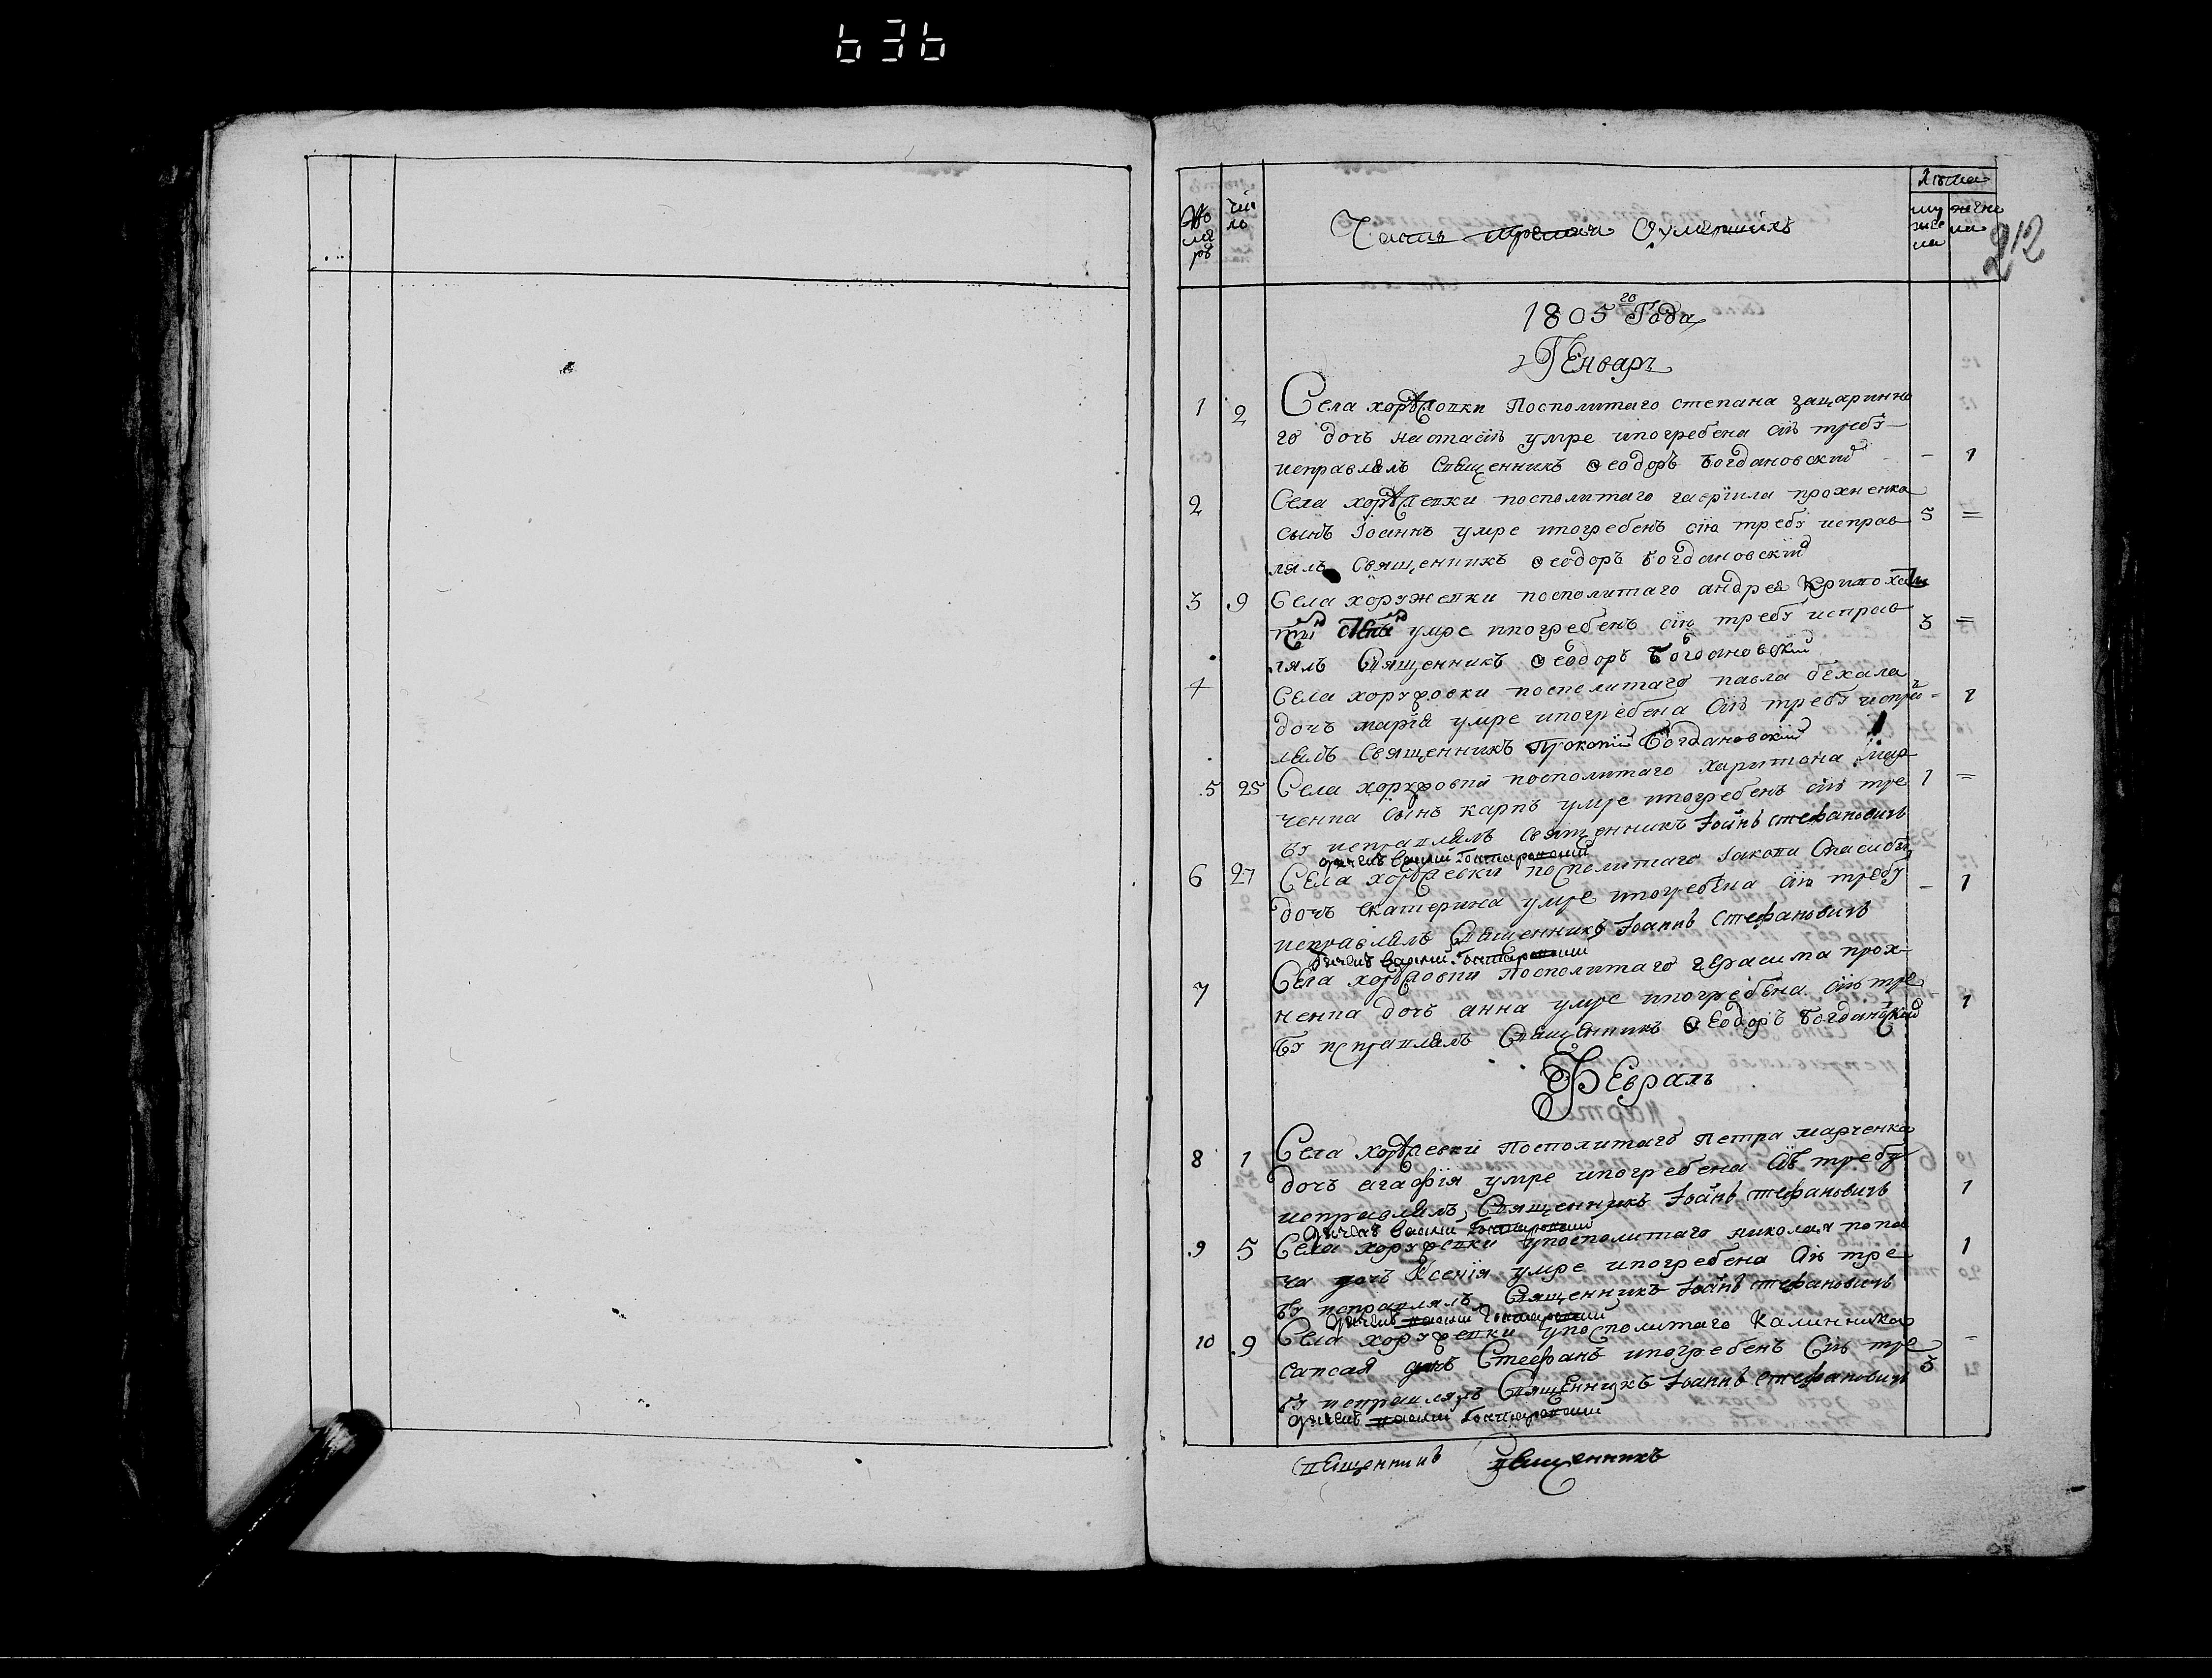 636
Номеръ
Число
Часть третия О умершихъ
Лѣта
мужеска
женска
212
1805го Года
Генваръ
1 2 Села хоружовки Посполитаго степана защаринно
го дочъ настасія умре ипогребена сію требу
исправлялъ Священникъ Ѳеодоръ Богдановский - 1
2 Села хоружевки посполитаго гавріила прохненка
сынъ Іоаннъ умре ипогребенъ сію требу исправ 5 =
лялъ Священникъ Ѳеодоръ Богдановскій
3 9 Села хоружевки посполитаго андрея
умре ипогребенъ сію требу исправ 3 =
лялъ Священникъ Ѳеодоръ Богдановскій
4 Села хоружовки посполитаго павла бехала
дочъ марія умре ипогребена сію требу исправ = 1
лялъ Священникъ Прокопій Богдановский
5 25 Села хоружовки посполитаго харитона мар 1 =
ченка сынъ карпъ умре ипогребенъ сію тре
бу исправлялъ священникъ Іоаннъ стефановичъ
дячекъ василій
6 27 Села хоружевки посполитаго Іакова
дочъ екатерина умре ипогребена сію требу - 1
исправлялъ Священникъ Іоаннъ Стефановичъ
дячекъ василій
7 Села хоружовки посполитаго герасима прох-
ненка дочъ анна умре ипогребена сію тре 1
бу исправлялъ Священникъ Ѳеодоръ Богдановский
Февраль
8 1 Села хоружевки Посполитаго Петра марченка
дочъ агафія умре ипогребена сію требу
исправлялъ Священникъ Іоаннъ стефановичъ 1
дячекъ василій
9 5 Села хоружевки упосполитаго николая попа 1
ча дочъ Ксенія умре ипогребена сію тре
бу исправлялъ Священникъ Іоаннъ стефановичъ
дячекъ василій
10 9 Села хоружевки упосполитаго Калинника =
сапсая Стефанъ ипогребенъ сію тре 3
бу исправлялъ Священникъ Іоаннъ стефановичъ
дячекъ василій
Священникъ Священникъ